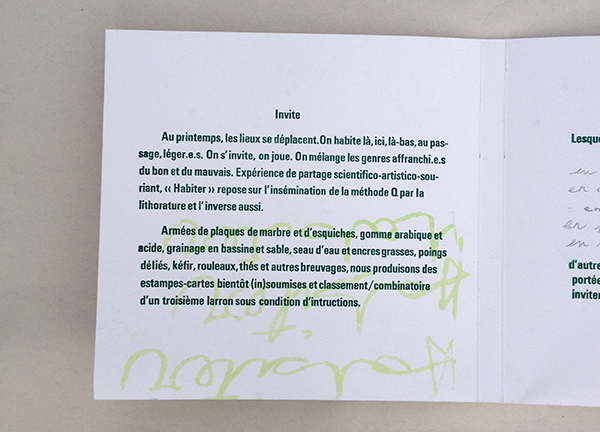 Invite
Au printemps, les lieux se déplacent. On habite là, ici, là-bas, au pas-
sage, léger.e.s. On s'invite, on joue. On mélange les genres affranchi.e.s
du bon et du mauvais. Expérience de partage scientifico-artistico-sou-
riant, « Habiter » repose sur l'insémination de la méthode Q par la
lithorature et l'inverse aussi.
Armées de plaques de marbre et d'esquiches, gomme arabique et
acide, grainage en bassine et sable, seau d'eau et encres grasses, poings
déliés, kéfir, rouleaux, thés et autres breuvages, nous produisons des
estampes-cartes bientôt (in)soumises et classement/combinatoire
d'un troisième larron sous condition d'intructions.
Habiter
Lesque
en
en
- en
en
en
d'autre
portée
inviten